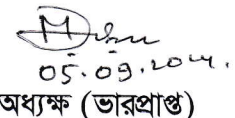 05.09.2024.
অধ্যক্ষ (ভারপ্রাপ্ত)